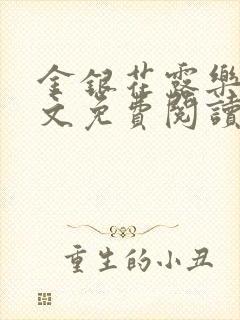 金銀花露樂
文免費閱讀
重生的小丑